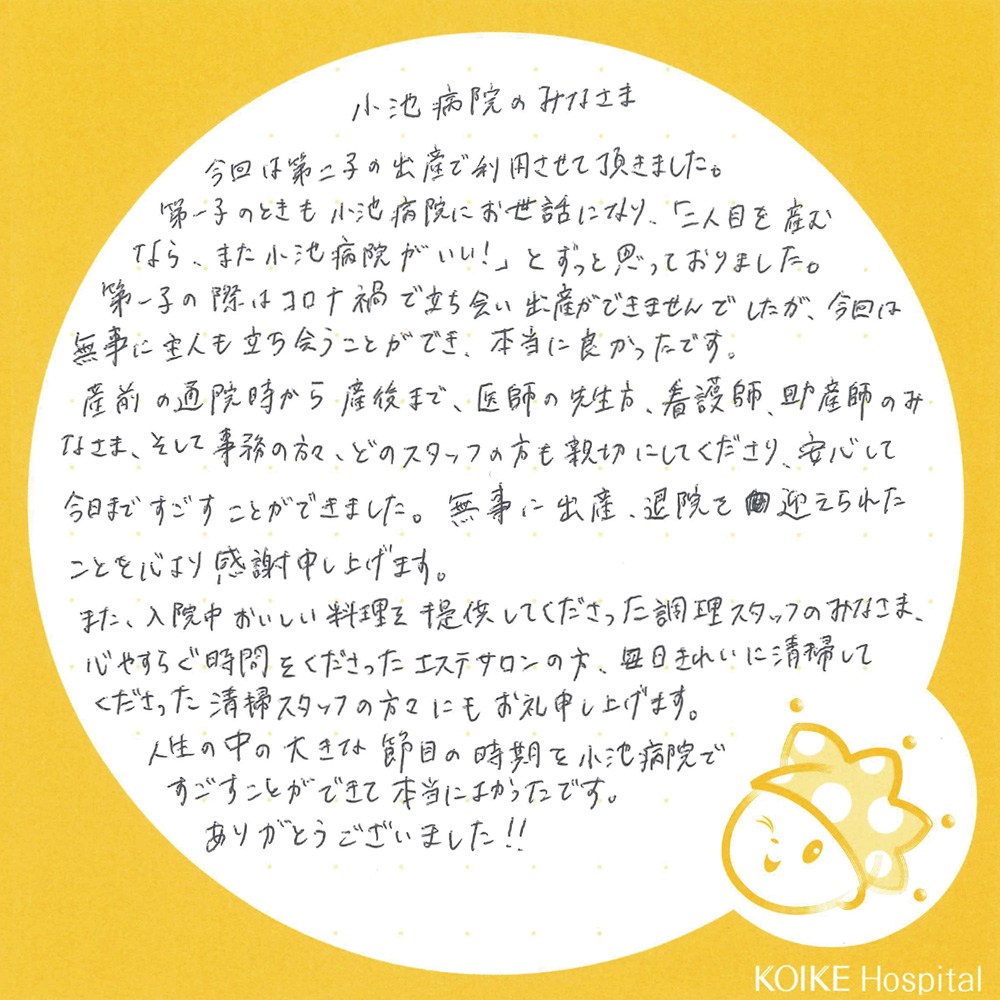 小池病院のみなさま
今回は第二子の出産で利用させて頂きました。
第一子のときも小池病院にお世話になり、「二人目を産む
なら、また小池病院がいい!」とずっと思っておりました。
第一子の際はコロナ禍で立ち会い出産ができませんでしたが、今回は
無事に主人も立ち会うことができ、本当に良かったです。
産前の通院時から産後まで、医師の先生方、看護師、助産師のみ
なさま、そして事務の方々、どのスタッフの方も親切にしてくださり、安心して
今日まですごすことができました。無事に出産、退院を迎えられた
ことを心より感謝申し上げます。
また、入院中おいしい料理を提供してくださった調理スタッフのみなさま、
心やすらぐ時間をくださったエステサロンの方、毎日きれいに清掃して
くださった清掃スタッフの方々にもお礼申し上げます。
人生の中の大きな節目の時期を小池病院で
すごすことができて本当によかったです。
ありがとうございました!!
KOIKE Hospital